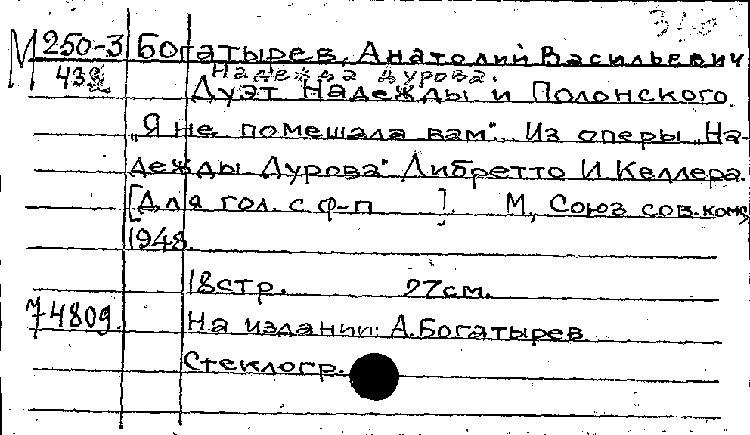 М 250-3 Богатырев, Анатолий Васильевич
Надежда Дурова.
Дуэт Надежды и Полонского
„Я не помешала вам". Из оперы „На-
дежды Дурова" Либретто И. Келлера.
[Для гол. с ф-п ]. М., Союз сов. комп,
1948.
18 стр. 27 см.
74809. На издании: А. Богатырев
Стеклогр.